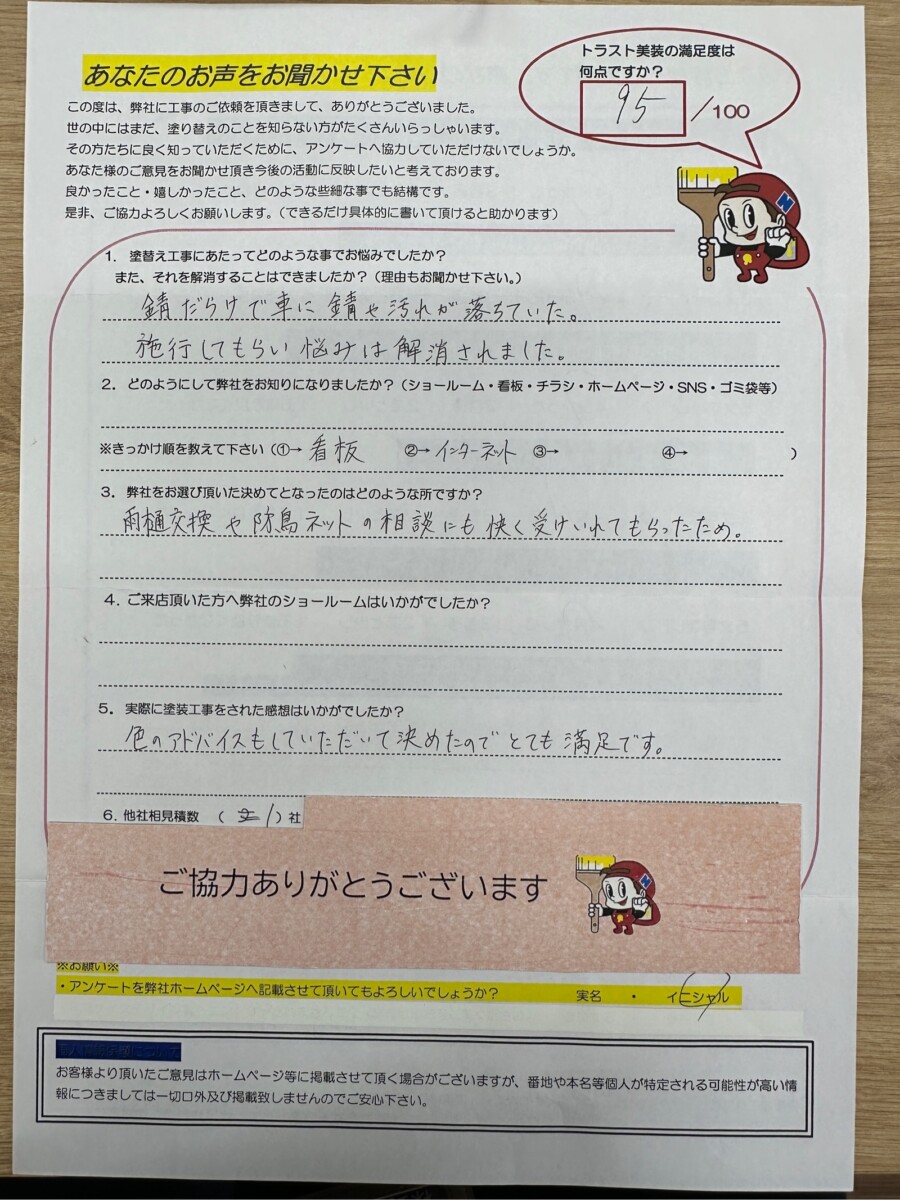 あなたのお声をお聞かせ下さい
トラスト美装の満足度は
何点ですか？
95 /100
この度は、弊社に工事のご依頼を頂きまして、ありがとうございました。
世の中にはまだ、塗り替えのことを知らない方がたくさんいらっしゃいます。
その方たちに良く知っていただくために、アンケートへ協力していただけないでしょうか。
あなた様のご意見をお聞かせ頂き今後の活動に反映したいと考えております。
良かったこと・嬉しかったこと、どのような些細な事でも結構です。
是非、ご協力よろしくお願いします。（できるだけ具体的に書いて頂けると助かります）
N
1. 塗替え工事にあたってどのような事でお悩みでしたか？
また、それを解消することはできましたか？（理由もお聞かせ下さい。）
錆だらけで車に錆や汚れが落ちていた。
施行してもらい悩みは解消されました。
2. どのようにして弊社をお知りになりましたか？（ショールーム・看板・チラシ・ホームページ・SNS・ゴミ袋等）
※きっかけ順を教えて下さい（①→ 看板 ②→ インターネット ③→ ④→ ）
3. 弊社をお選び頂いた決めてとなったのはどのような所ですか？
雨樋交換や防鳥ネットの相談にも快く受けいれてもらったため。
4. ご来店頂いた方へ弊社のショールームはいかがでしたか？
5. 実際に塗装工事をされた感想はいかがでしたか？
色のアドバイスもしていただいて決めたのでとても満足です。
6. 他社相見積数 （ 1 ）社
ご協力ありがとうございます
N
※お願い※
・アンケートを弊社ホームページへ記載させて頂いてもよろしいでしょうか？ 実名 ・ イニシャル
お客様より頂いたご意見はホームページ等に掲載させて頂く場合がございますが、番地や本名等個人が特定される可能性が高い情
報につきましては一切口外及び掲載致しませんのでご安心下さい。